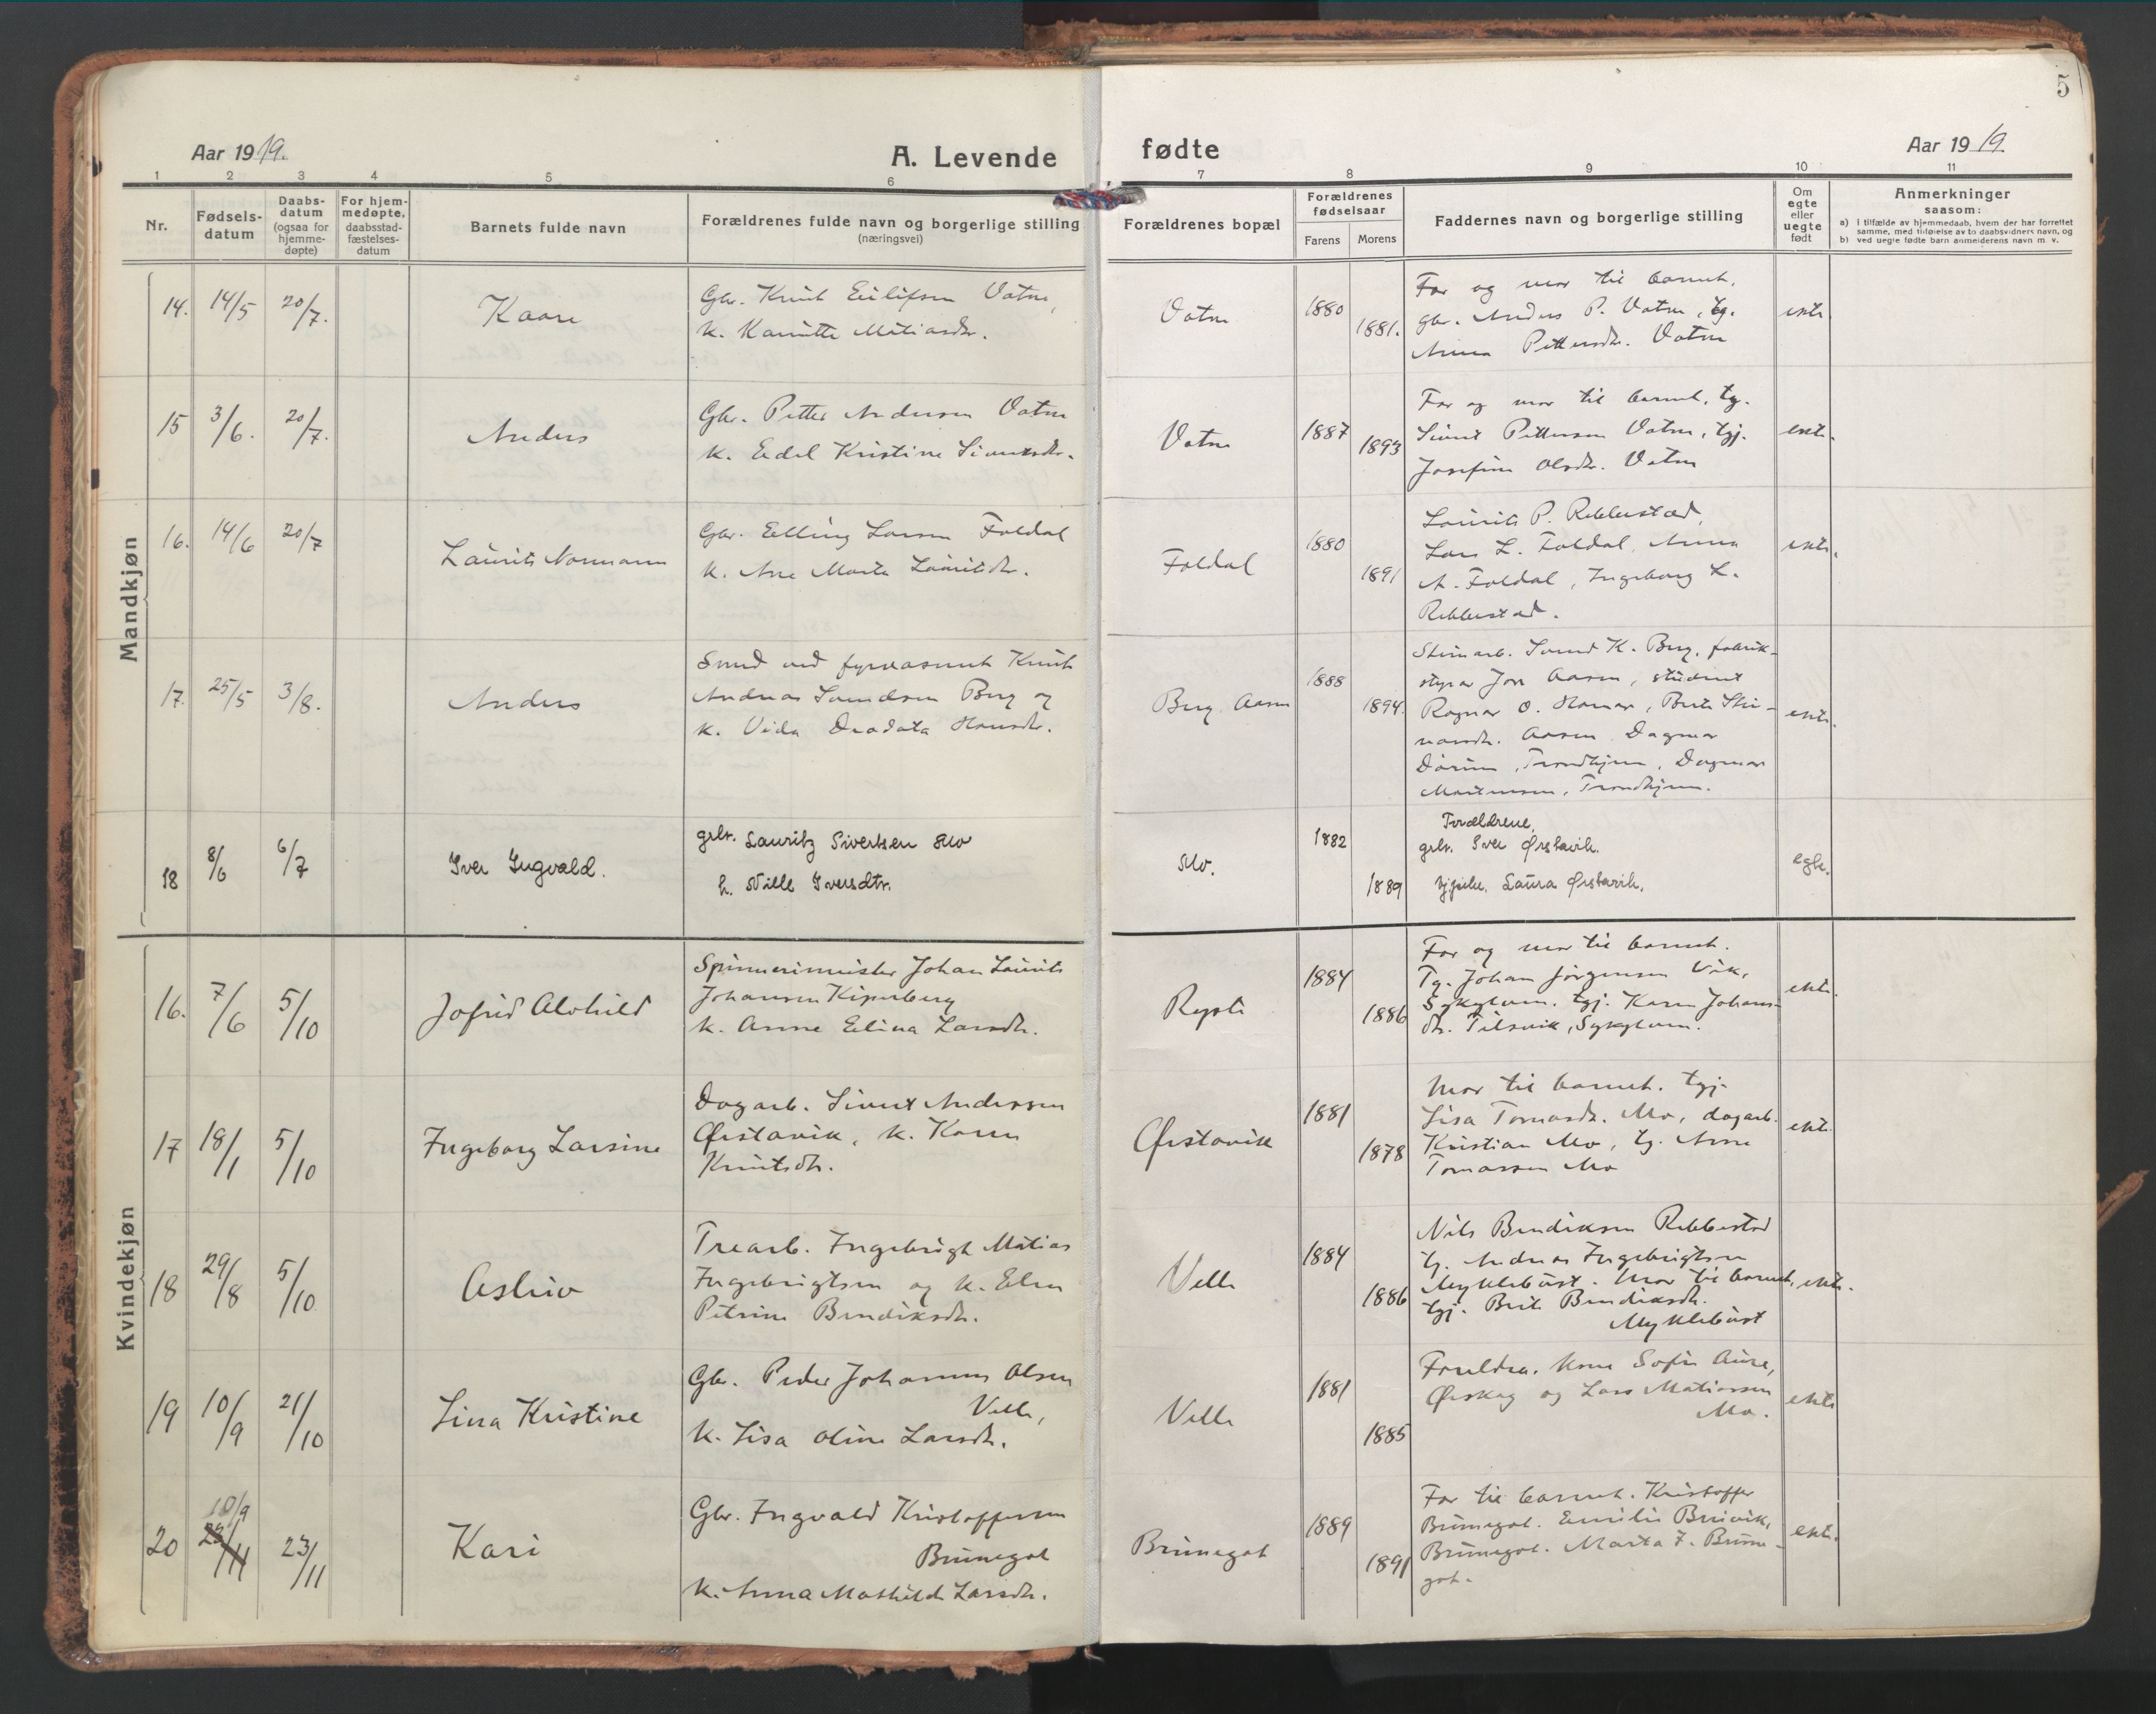 5
Aar 1919.
A. Levende
fødte
Aar 1919.
1 2 3 4 5 6 7 8 9 10 11
Nr.
Fødsels-
datum
Daabs-
datum
(ogsaa for
hjemme-
døpte)
For hjem-
medøpte,
daabsstad-
fæstelses-
datum
Barnets fulde navn
Forældrenes fulde navn og borgerlige stilling
(næringsvei)
Forældrenes bopæl
Forældrenes
fødselsaar
Farens Morens
Faddernes navn og borgerlige stilling
Om
egte
eller
uegte
født
Anmerkninger
saasom:
a) i tilfælde av hjemmedaab, hvem der har forrettet
samme, med tilføielse av to daabsvidners navn, og
b) ved uegte fødte barn anmelderens navn m. v.
Mandkjøn
14. 14/5 20/7. Kaare
Gbr. Knut Eilifsen Vatne,
k. Kamitte Matiasdr.
Vatne 1880 1881.
Far og mor til barnet,
gbr. Anders P. Vatne, tg.
Anna Pettersdr. Vatne
ekte.
15 3/6. 20/7. Anders
Gbr. Petter Andersen Vatne
k. Edel Kristine Sivertsdr.
Vatne 1887 1893
Far og mor til barnet, tg.
Sivert Pettersen Vatne, tgj.
Josefine Olsdr. Vatne
ekte.
16. 14/6 20/7 Laurits Normann
Gbr. Elling Larsen Foldal
k. Ane Marta Lauritsdr.
Foldal 1880 1891
Laurits P. Rebbestad,
Lars L. Foldal, Anna
A. Foldal, Ingeborg L.
Rebbestad.
ekte.
17. 25/5 3/8. Anders
Smed ved fyrvæsenet Knut
Andreas Svendsen Berg og
k. Vida Deodata Hansdr.
Berg, Aasen 1888 1894.
Stenarb. Svend K. Berg, fabrik-
styrar Jon Aasen, student
Ragnar O. Hamar, Berte Stei-
narsdr. Aasen, Dagmar
Trondhjem, Dagmar
Martinsen, Trondhjem.
ekte.
18 8/6 6/7 Iver Ingvald.
grbr. Lauritz Sivertsen Mo
h. Nille Iversdtr.
Mo. 1882 1889
Forældrene,
grbr. Iver Ørstavik.
Laura Ørstavik.
egte.
Kvindekjøn
16. 7/6 5/10 Jofrid Alvhild
Spinnerimeister Johan Laurits
Johansen Kiperberg
k. Anne Elina Larsdr.
Rysti 1884 1886
Far og mor til barnet.
Tg. Johan Jørgensen Vik,
Sykylven. tgj. Karen Johans-
dr. Tilsvik, Sykylven.
ekte.
17 18/1 5/10 Ingeborg Larsine
Dagarb. Sivert Anderssen
Ørstavik, k. Karen
Knutsdr.
Ørstavik 1881 1878
Mor til barnet. tgj.
Lisa Tomasdr. Mo, dagarb.
Kristian Mo, tg. Arne
Tomassen Mo
ekte
18 29/8 5/10 Aslaug
Trearb. Ingebrigt Matias
Ingebrigtsen og k. Elen
Petrine Bendiksdr.
Velle 1884 1886
Nils Bendiksen Rebbestad
tg. Andreas Ingebrigtsen
Myklebust. Mor til barnet,
tgj. Brit Bendiksdr.
Myklebust
ekte.
19 10/9 21/10 Lina Kristine
Gbr. Peder Johannes Olsen
Velle,
k. Lisa Oline Larsdr.
Velle 1881 1885
Foreldra. Kone Sofie Aure,
Ørskog og Lars Matiassen
Mo.
ekte
20 18/9 23/11 23/11 Kari
Gbr. Ingvald Kristoffersen
Brunegot
k. Anna Mathilde Larsdr.
Brunegot 1889 1891
Far til barnet. Kristoffer
Brunegot. Emilie Breivik,
Brunegot. Marta I. Brune-
got.
ekte.